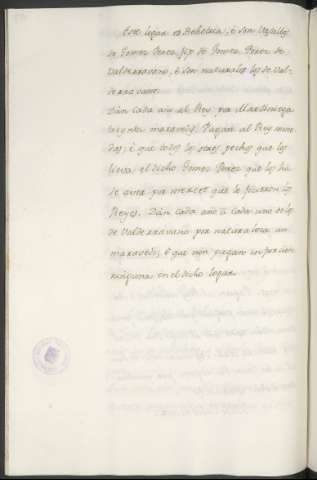 Este logar es Behetria, é son Vasallos
de Gomez Perez fijo de Gomez Perez de
Valderravano, é son naturales los de Val-
derravano.
Dan cada año al Rey por Martiniega
treynta maravedis. Pagan al Rey mone-
das, é que todos los otros pechos que los
lieva el dicho Gomez Perez que los hi
se quita por merced que le ficieron los
Reyes. Dan cada año á cada uno de los
de Valderravano por naturaleza un
maravedi, é que non pagan infurcion
ninguna en el dicho logar.